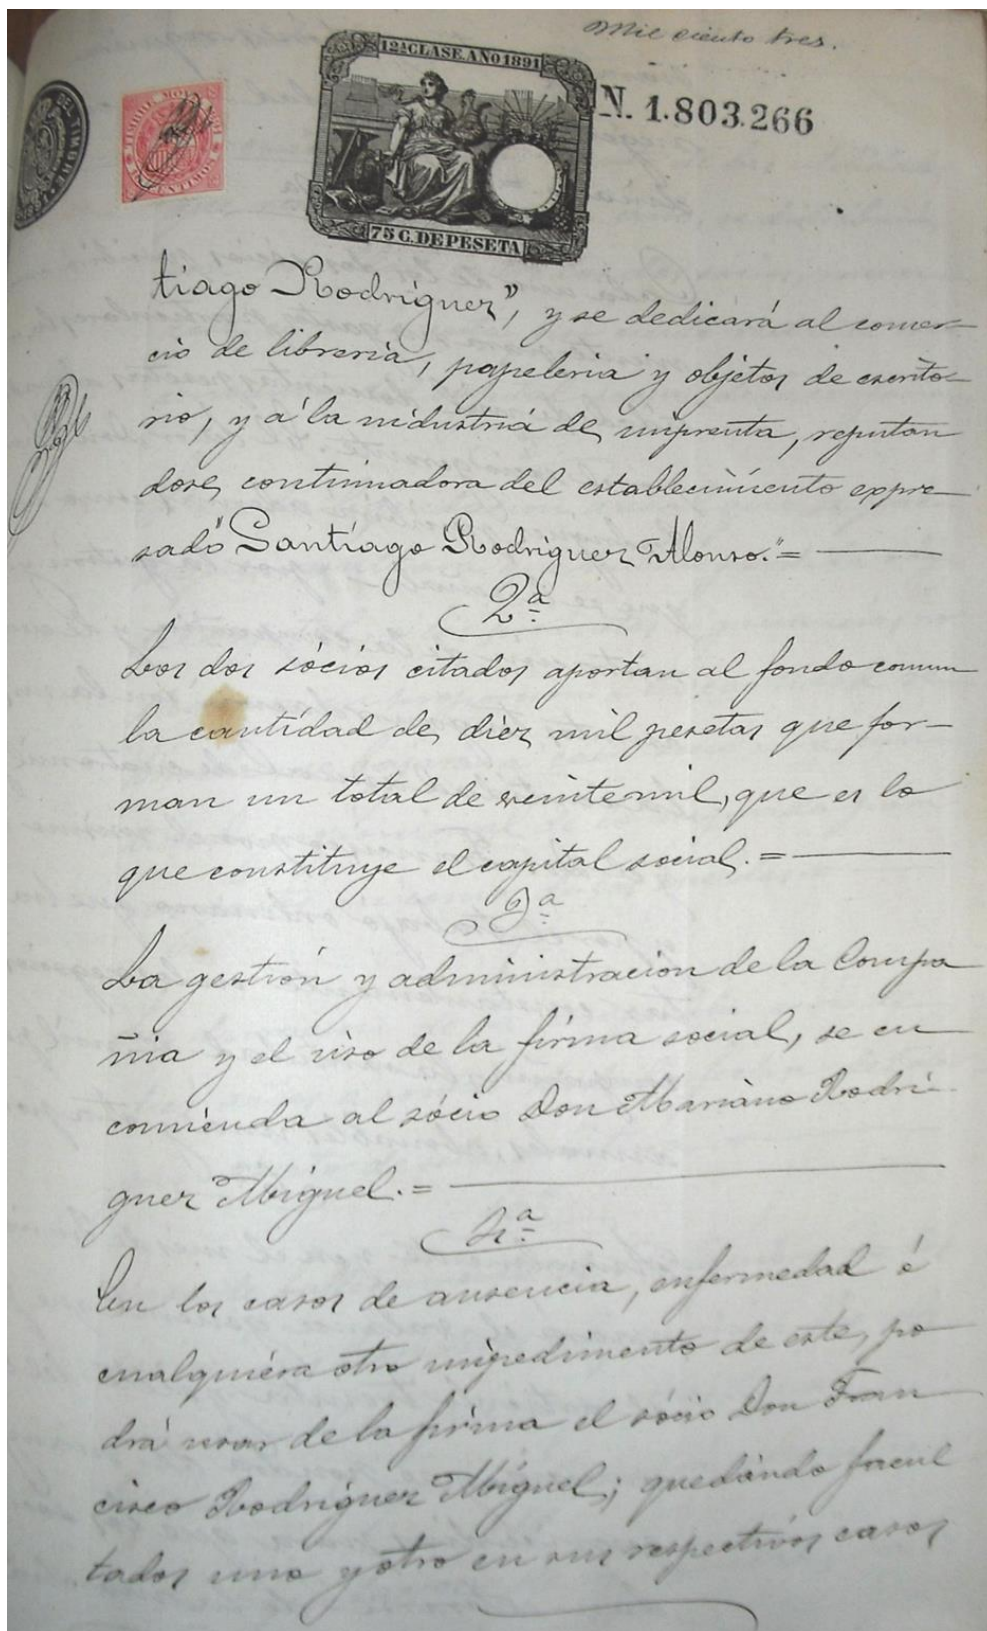 Mil ciento tres.
12ª CLASE. AÑO 1891
N. 1.803.266
DEL TIMBRE
TIMBRE MOVIL
10 CENTIMOS
75 C. DE PESETA
tiago Rodriguez", y se dedicará al comer-
cio de libreria, papeleria y objetos de escrito-
rio, y á la industriá de imprenta, reputan
dose continuadora del establecimiento expre-
sado "Santiago Rodriguez Alonso." =
2ª
Los dos sócios citados aportan al fondo comun
la cantidad de diez mil pesetas que for-
man un total de veinte mil, que es lo
que constituye el capital social. =
3ª
La gestión y administracion de la Compa
ñia y el uso de la firma social, se en
comienda al sócio Don Mariano Rodri-
guez Miguel. =
4ª
En los casos de ausencia, enfermedad é
cualquiera otro impedimento de este, po
drá usar de la firma el sócio Don Fran
cisco Rodriguez Miguel; quedando facul
tados uno y otro en sus respectivos casos